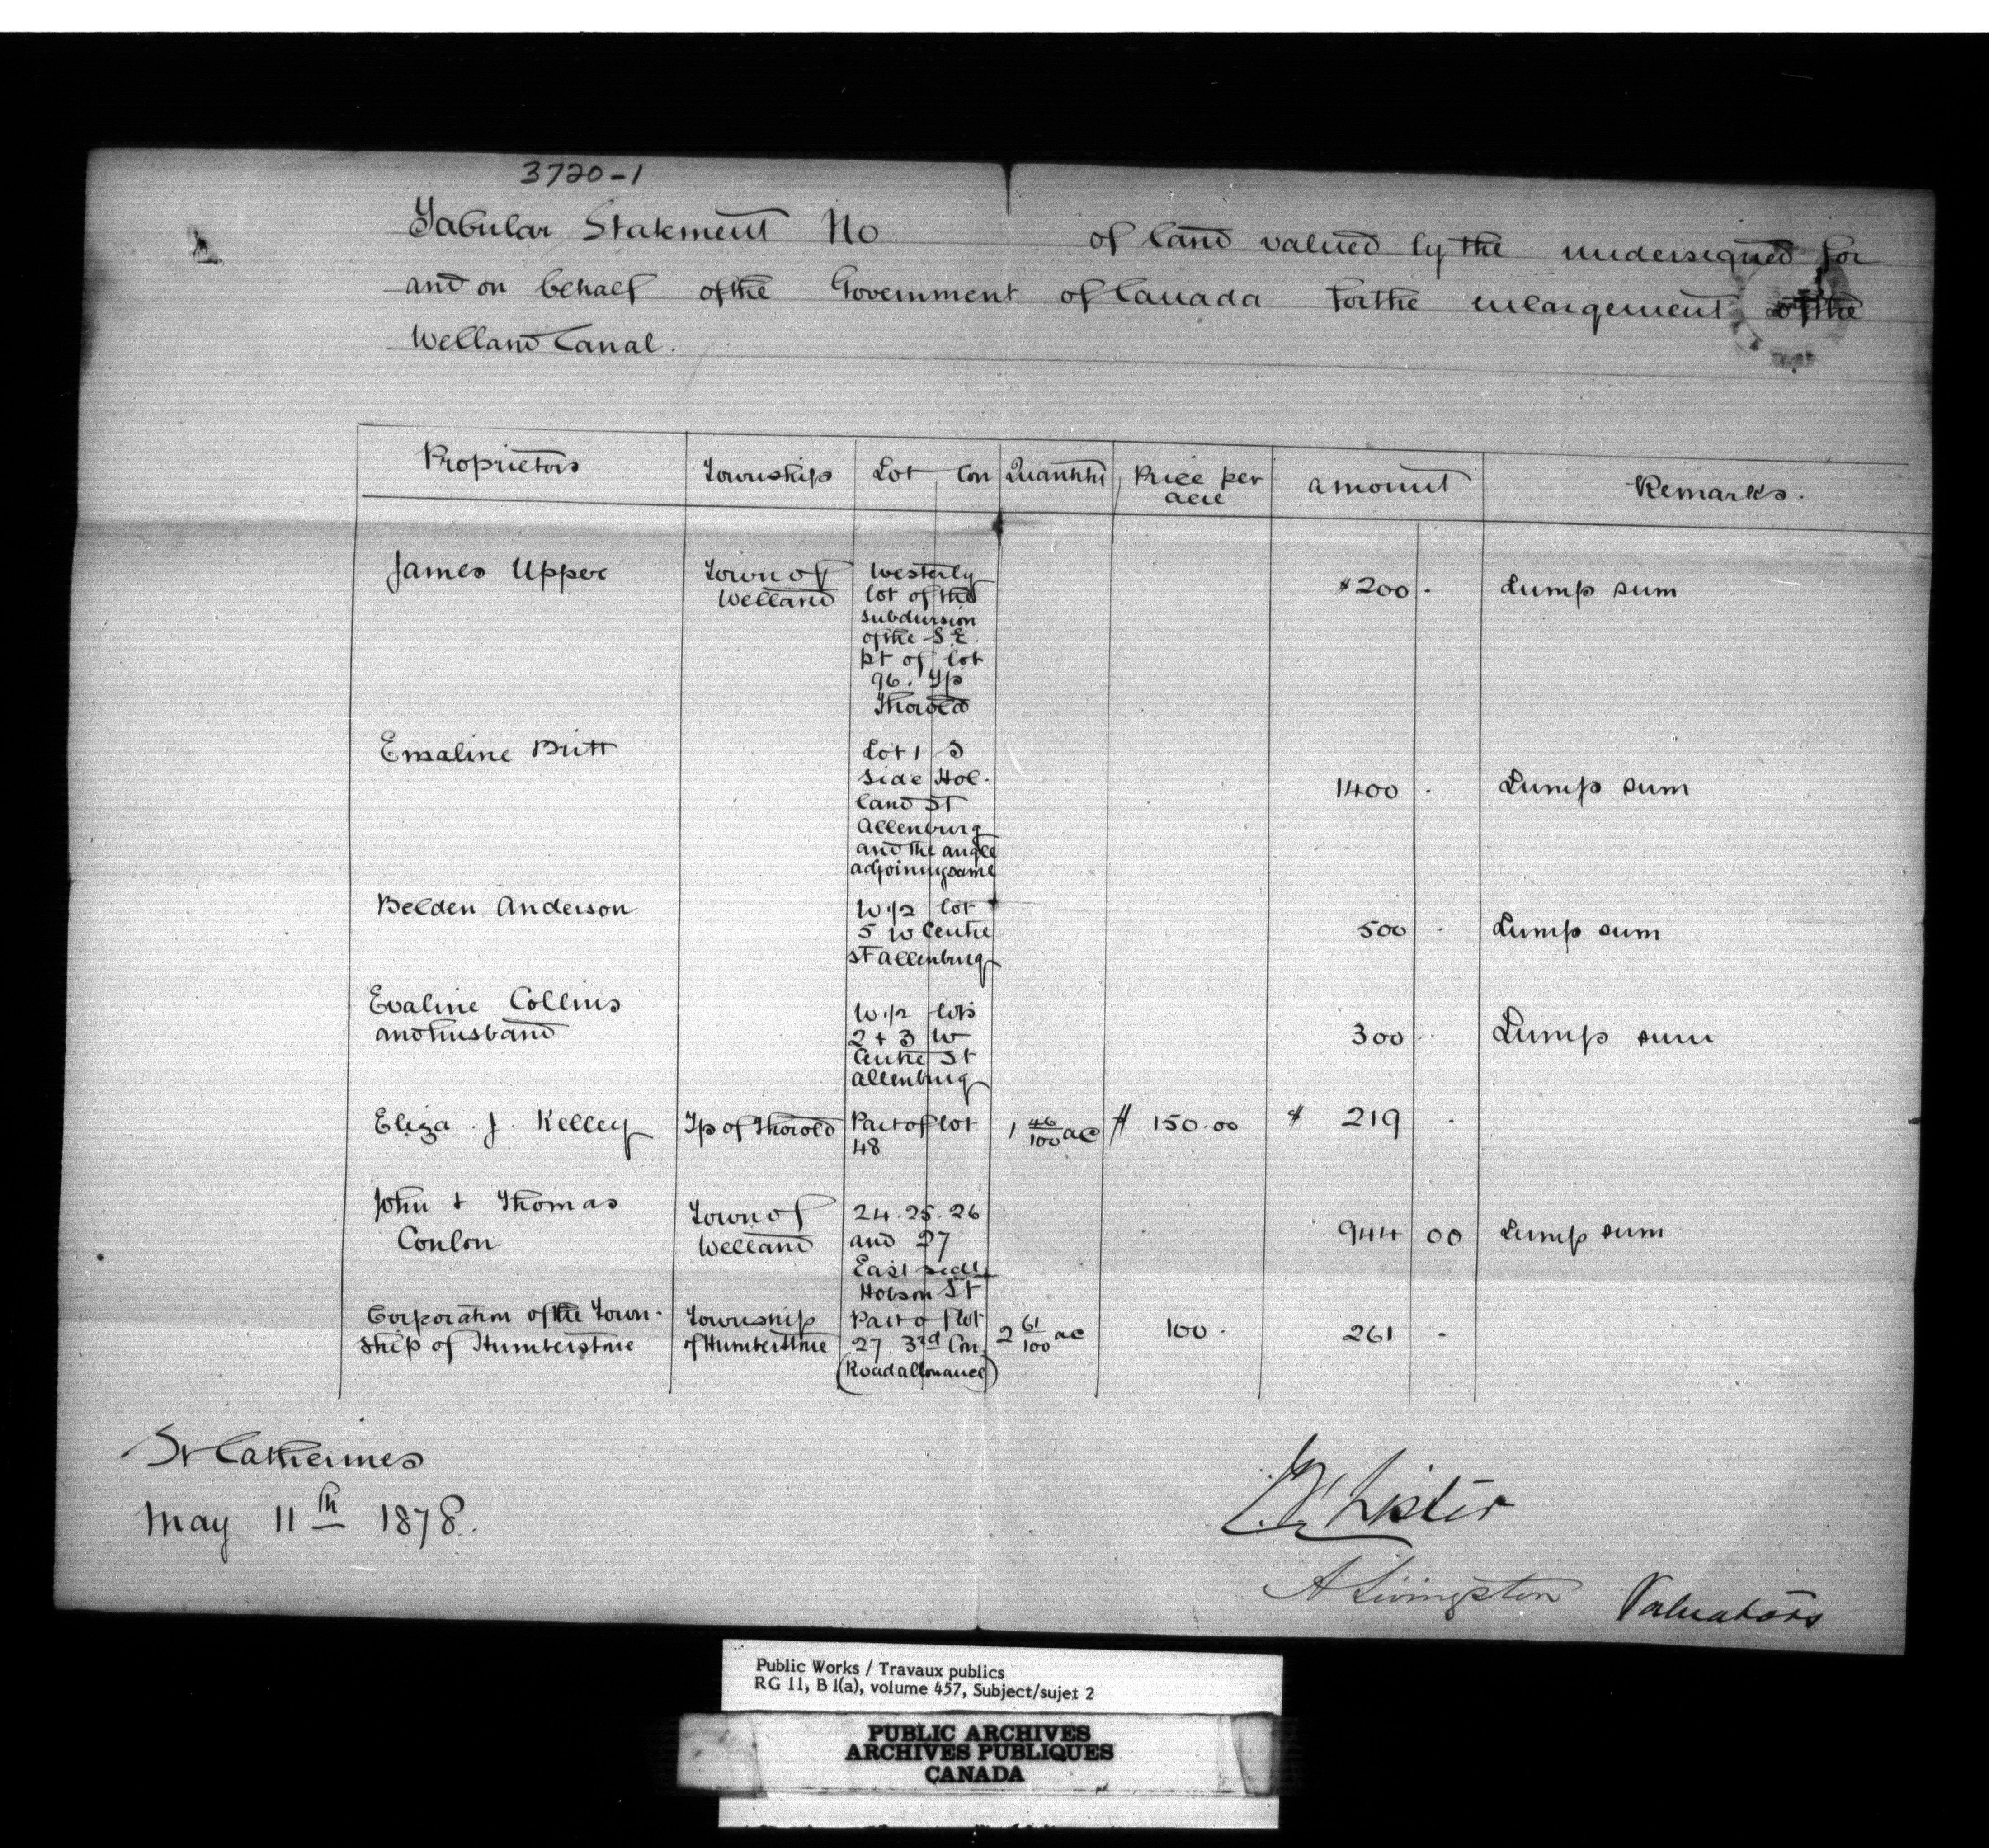 3720-1
Tabular Statement No of land valued by the undersigned for
and on behalf of the Government of Canada for the enlargement of the
Welland Canal.
Proprietors Townships Lot Con Quantity Price per acre amount Remarks.
James Upper Town of Welland $200 . Lump sum
Westerly
lot of the
subdivision
of the S.E.
pt of lot
96. Tp
Thorold
Emaline Britt 1400 . Lump sum
Lot 1 S
side Hol-
land St
Allenburg
and the angle
adjoining same
Belden Anderson 500 . Lump sum
W 1/2 lot
5 W Centre
St Allenburg
Evaline Collins
and husband 300 . Lump sum
W 1/2 lots
2 + 3 W
Centre St
Allenburg
Eliza . J. Kelley Tp of Thorold Part of lot 1 46/100 ac $ 150.00 $ 219 .
48
John + Thomas
Conlon Town of Welland 944 00 Lump sum
24.25.26
and 27
East side
Hobson St
Corporation of the Town-
ship of Humberstone Township
of Humberstone 2 61/100 ac 100. 261 .
Part of lot
27. 3rd Con.
(Road allowance)
St Catherines
May 11th 1878.
Lister
A Livingston Valuators
Public Works / Travaux publics
RG 11, B 1(a), volume 457, Subject/sujet 2
PUBLIC ARCHIVES
ARCHIVES PUBLIQUES
CANADA